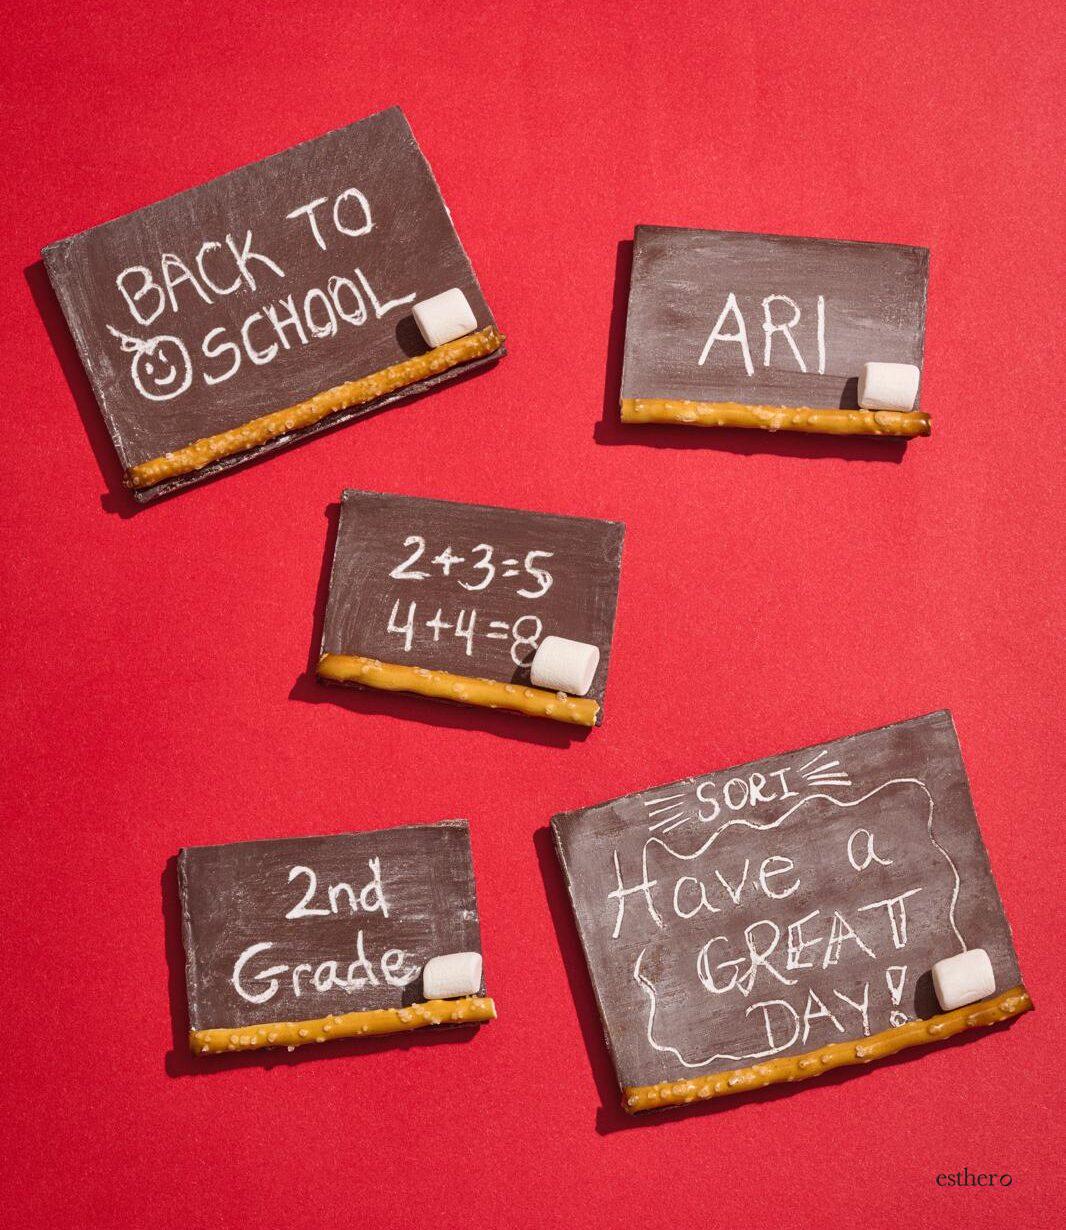 BACK TO
SCHOOL
ARI
2+3=5
4+4=8
2nd
Grade
SORI
Have a
GREAT
DAY!
esthero